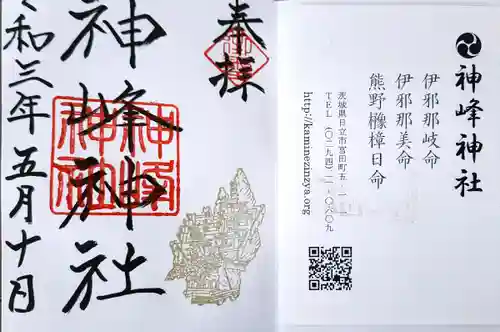 奉拝
神峰神社
神峰神社
令和三年五月十日
神峰神社
伊邪那岐命
伊邪那美命
熊野櫲樟日命
茨城県日立市宮田町五-一-一
TEL 〇二九四-二一-〇六〇九
http://kaminezinzya.org